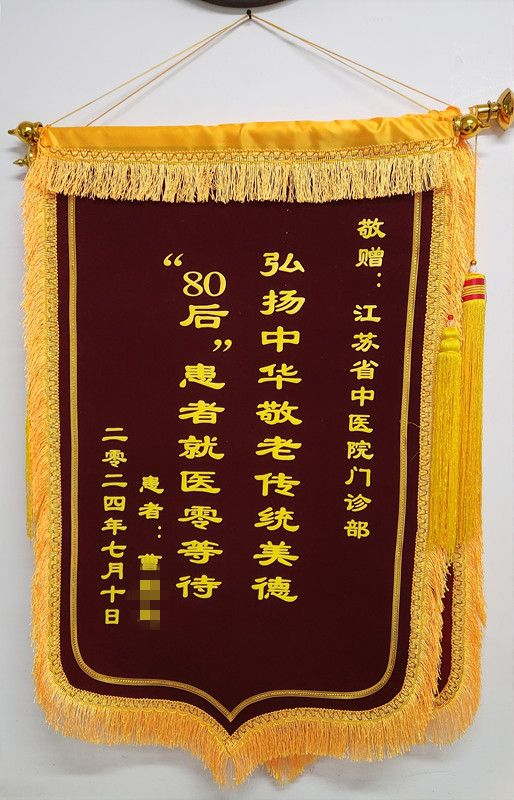 敬赠：江苏省中医院门诊部
弘扬中华敬老传统美德
“80后”患者就医零等待
患者：曹
二零二四年七月十日